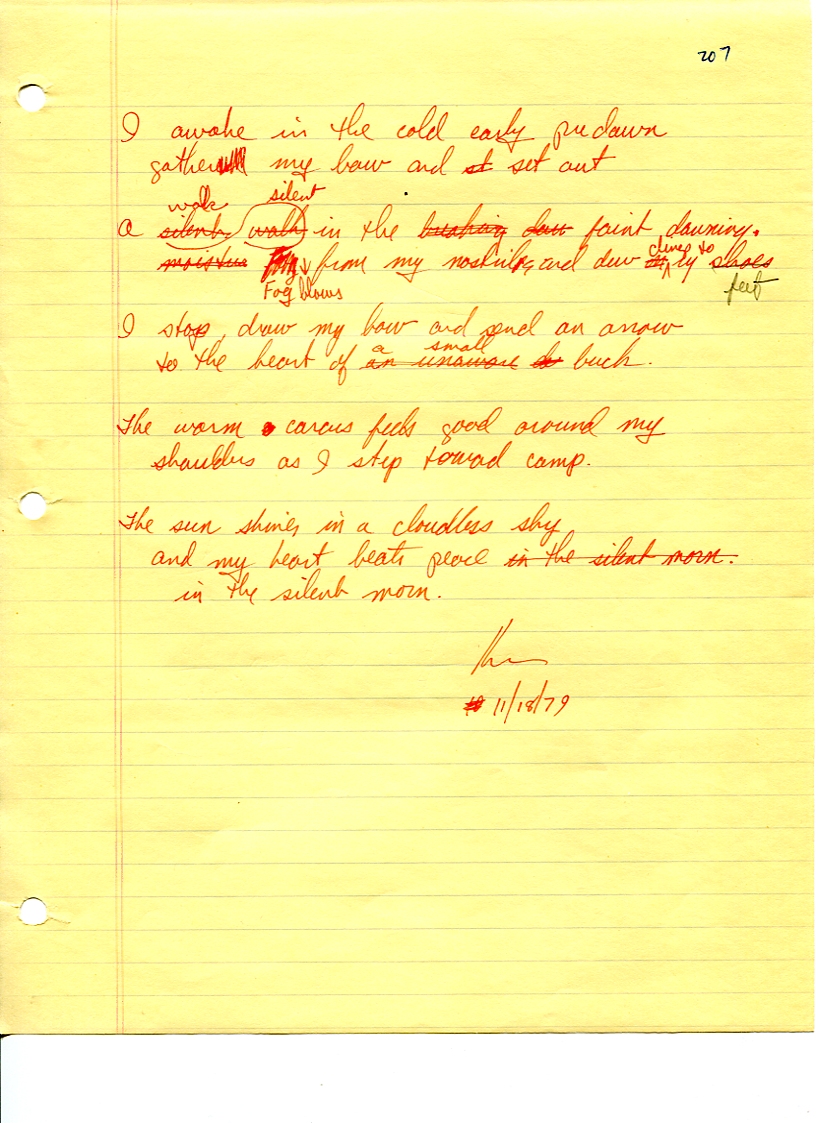 207
I awake in the cold early predawn
gather my bow and st set out
walk silent
a silent walk in the breaking dawn faint dawning.
moisture from my nostrils, and dew on my shoes
clings to
Fog blows
feet
I stop, draw my bow and send an arrow
a small
to the heart of an unaware buck.
The warm carcus feels good around my
shoulders as I step toward camp.
The sun shines in a cloudless sky
and my heart beats peace in the silent morn.
in the silent morn.
11/18/79